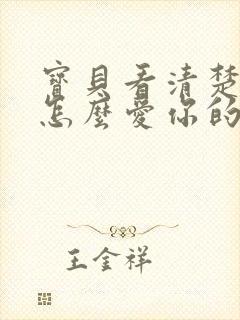 寶貝看清楚
怎麼愛你的
王金祥